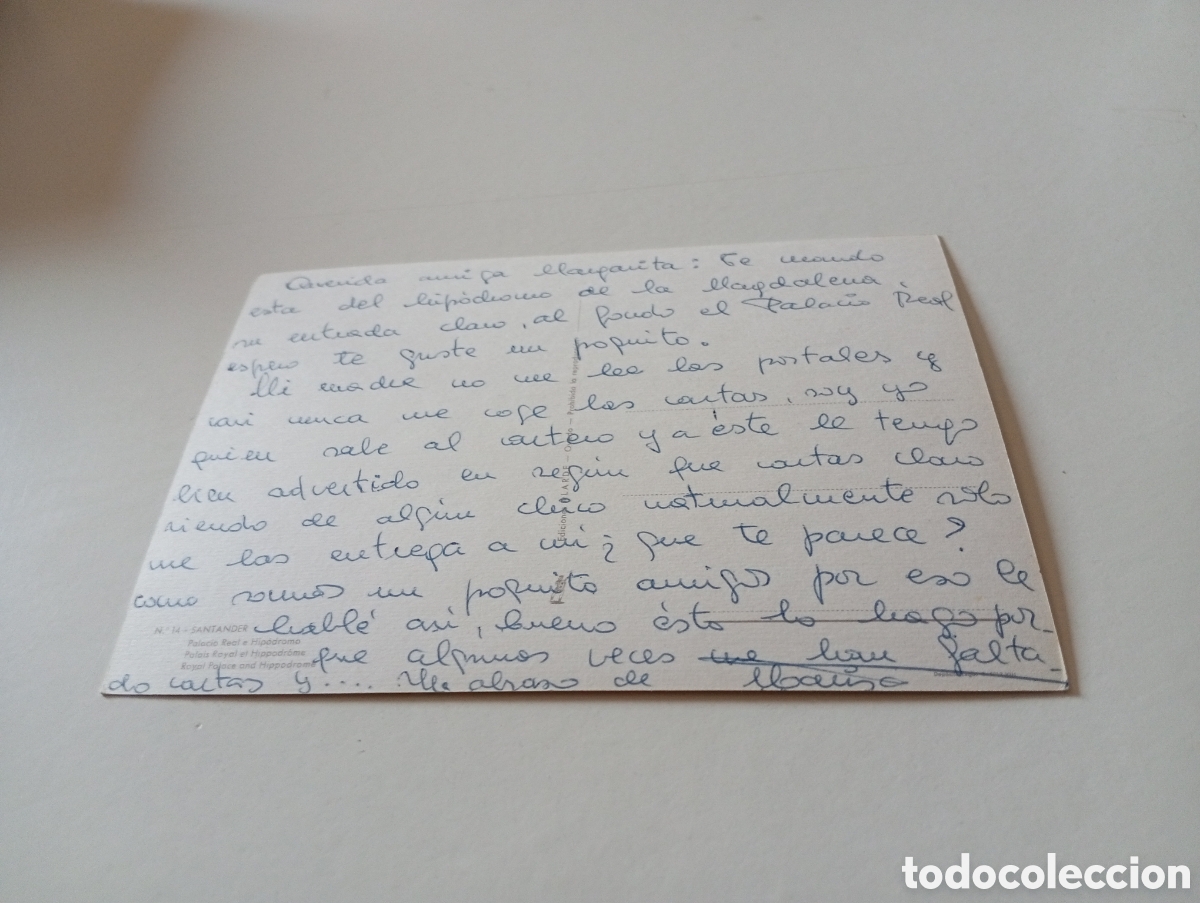 Querida amiga Margarita: Te mando
esta del hipódromo de la Magdalena
su entrada claro, al fondo el Palacio Real
espero te guste un poquito.
Mi madre no me lee las postales y
casi nunca me coge las cartas, soy yo
quien sale al cartero y a éste le tengo
bien advertido en según que cartas claro
siendo de algún chico naturalmente sólo
me las entrega a mi ¿que te parece?
como somos un poquito amigos por eso le
hablé asi, bueno ésto lo hago por-
que algunos veces me han falta-
do cartas y.... Un abrazo de
N.º 14 - SANTANDER
Palacio Real e Hipódromo
Palais Royal et Hippodrôme
Royal Palace and Hippodrome
todocoleccion